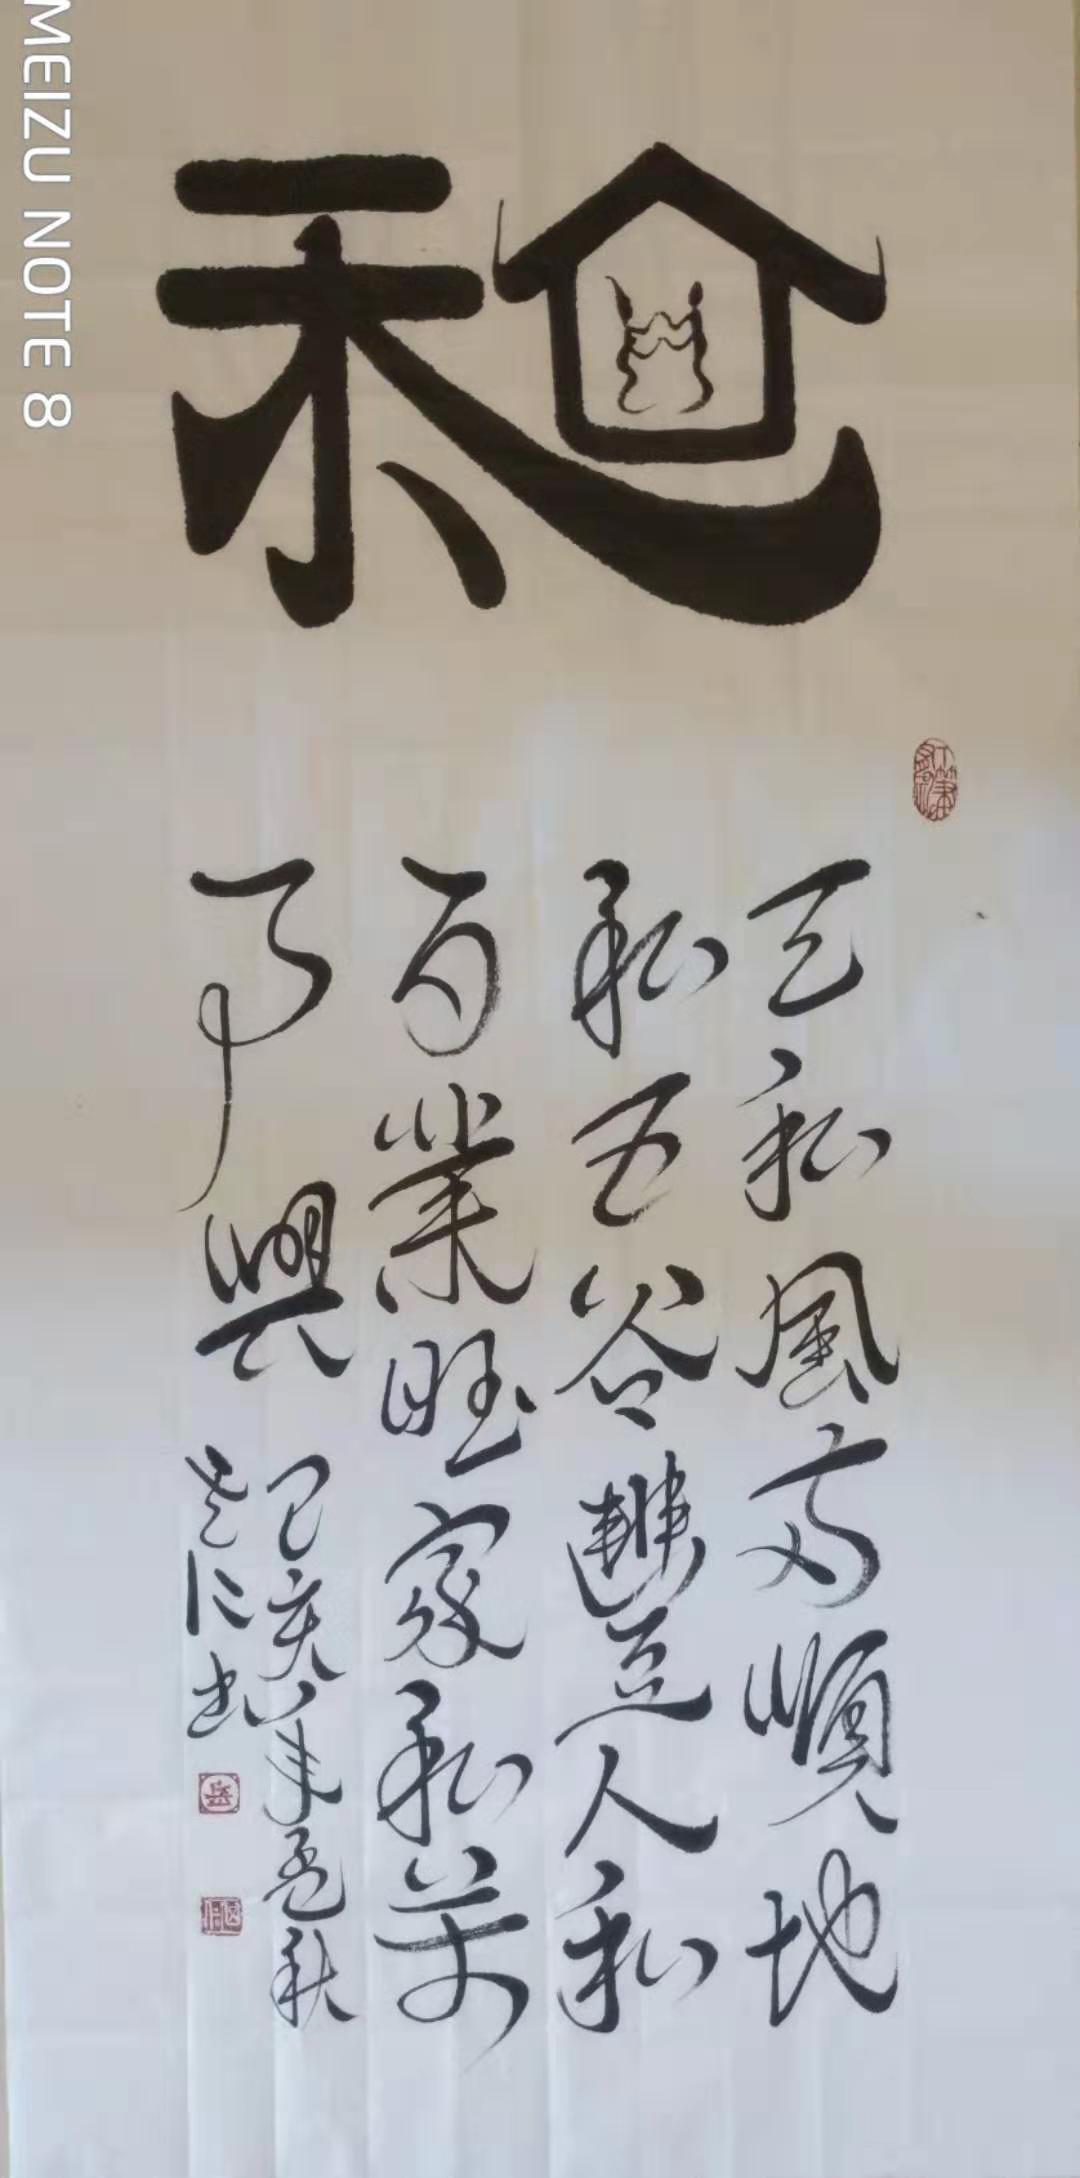 MEIZU NOTE 8
和
天和風雨順地
和五谷豐登人和
百業旺家和万
事興
己亥年孟秋
岳仁书
岳